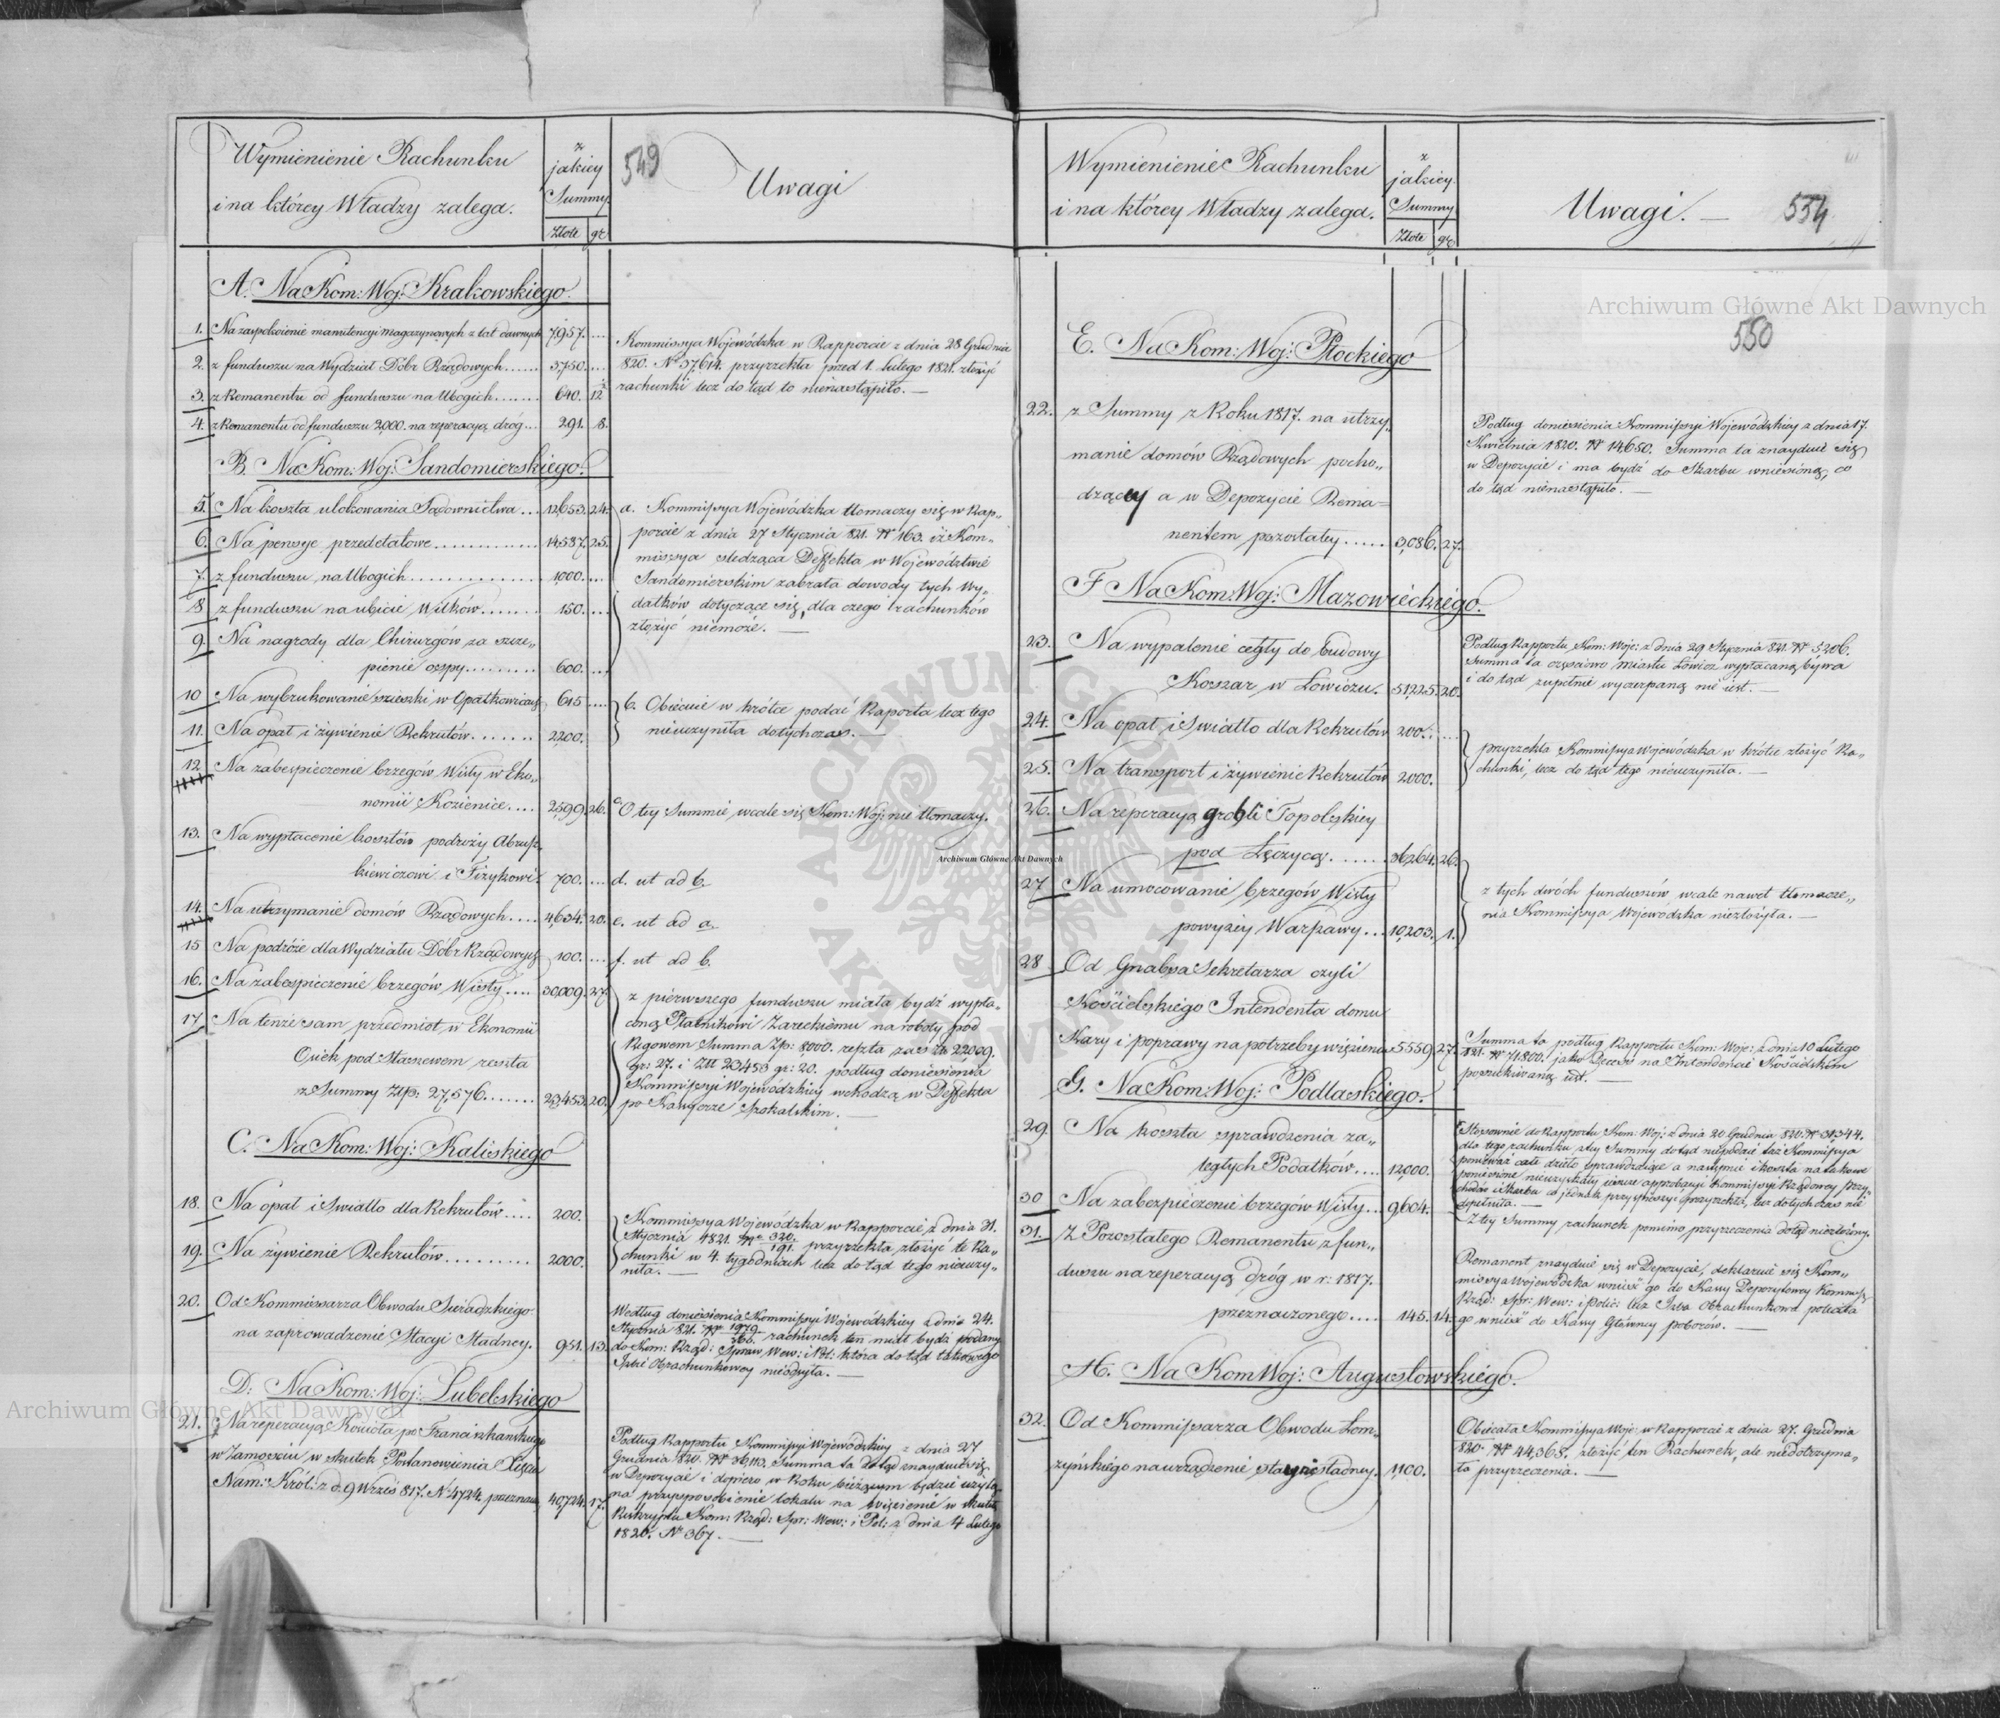 Wymienienie Rachunku
i na którey Władzy zalega.
z
jakiey
Summy
Złote gr.
549
Uwagi
A. Na Kom: Woj: Krakowskiego
1. Na zaspokoienie manutencyi magazynowych z lat dawnych 7,957. ...
2. z funduszu na Wydział Dóbr Rządowych ...... 3750. ...
3. z Remanentu od funduszu na Ubogich ....... 640. 12
4. z Remanentu od funduszu 2,000. na reperacyą dróg ... 291. 8.
Kommissya Wojewódzka w Rapporcie z dnia 28 Grudnia
820. No 37,614. przyrzekła przed 1. Lutego 1821. złożyć
rachunki lecz do tąd to nienastąpiło. —
B. Na Kom: Woj: Sandomierskiego.
5. Na koszta ulokowania Sądownictwa ... 12,653. 24.
6. Na pensye przedetatowe ............. 14,587. 25.
7. z funduszu na Ubogich ............... 1000. ...
8 z funduszu na ubicie Wilków ....... 150. ...
9. Na nagrody dla Chirurgów za szcze„
pienie ospy ......... 600. ...
10 Na wybrukowanie szieszki w Opatkowicach 615 ...
11. Na opał i żywienie Rekrutów ....... 2200.
12 Na zabespieczenie brzegów Wisły w Eko„
nomii Kozienice .... 2,599. 26.
13. Na wypłacenie kosztów podróży
kiewiczowi i Fizykowi 700. ...
14. Na utrzymanie domów Rządowych .... 4,634. 20.
15 Na podróże dla Wydziału Dóbr Rządowych 100. ...
16. Na zabespieczenie brzegów Wisły .... 30,009. 27.
17 Na tenże sam przedmiot w Ekonomii
Osiek pod Staszewem reszta
z Summy Złp: 27,576. ....... 23,453. 20.
a. Kommissya Wojewódzka tłomaczy się w Rap„
porcie z dnia 27 Stycznia 821. No 163. iż Kom„
missya śledząca Deffekta w Województwie
Sandomierskim zabrała dowody tych Wy„
datków dotyczące się, dla czego rachunków
złożyć niemoże. —
b. Obiecuie w krótce podać Raporta lecz tego
nieuczyniła dotychczas. —
c O tey Summie wcale się Kom: Woj: nie tłomaczy.
d. ut ad b.
e. ut ad a.
f. ut ad b.
z pierwszego funduszu miała bydź wypła„
coną Płatnikowi Zareckiemu na roboty pod
Rzgowem Summa Złp: 8,000. reszta zaś to 22,009.
Gr: 27. i Złt 23,453 gr: 20. podług doniesienia
Kommissyi Wojewódzkiey wchodzą w Deffekta
po Kassyerze Skokalskim. —
C. Na Kom: Woj: Kaliskiego
18. Na opał i Swiatło dla Rekrutów .... 200.
19. Na żywienie Rekrutów .......... 2000.
20. Od Kommissarza Obwodu Sieradzkiego
na zaprowadzenie Stacyi Stadney. 951. 13.
Kommissya Wojewódzka w Rapporcie z dnia 31.
Stycznia 1821. No 320/191. przyrzekła złożyć te Ra„
chunki w 4. tygodniach lecz do tąd tego nieuczy„
niła. —
Według doniesienia Kommissyi Wojewódzkiey z dnia 24.
Stycznia 821. No rachunek ten miał bydź podany
do Kom: Rząd: Spraw Wew: i Pol: która do tąd takowego
Izbie Obrachunkowey
D: Na Kom: Woj: Lubelskiego
21. Na reperacyą Kościoła po Franciszkańskiego
w Zamościu w skutek Postanowienia Xięcia
Nam: Król: z d. 9 Wrześ 817. No 4724. przeznacz. 40,724. 17.
Podług Rapportu Kommissyi Wojewódzkiey z dnia 27
Grudnia 1820. No 36,110. Summa ta do tąd znayduie się
w Depozycie i dopiero w Roku bieżącym będzie użytą
na przysposobienie lokalu na więzienie w skutek
Reskryptu Kom: Rząd: Spr: Wew: i Pol: z dnia 4 Lutego
1820. No 367. —
Wymienienie Rachunku
i na którey Władzy zalega.
z
jakiey
Summy
Złote gr.
Uwagi. —
554
550
E. Na Kom: Woj: Płockiego
22. z Summy z Roku 1817. na utrzy„
manie domów Rządowych pocho„
dzącey a w Depozycie Rema=
nentem pozostałey ..... 3,086. 27.
Podług doniesienia Kommissyi Wojewódzkiey z dnia 17.
Kwietnia 1820. No 14,650. Summa ta znayduie się
w Depozycie i ma bydź do Skarbu wniesioną, co
do tąd nienastąpiło. —
F Na Kom: Woj: Mazowieckiego.
23. Na wypalenie cegły do budowy
Koszar w Łowiczu. 51,225. 20.
24. Na opał i Swiatło dla Rekrutów 200. ...
25. Na transport i żywienie Rekrutów 2000.
26. Na reperacyą grobli Topolskiey
pod Łęczycą. ...... 36,264. 26.
27 Na umocowanie brzegów Wisły
powyżey Warszawy ... 10,203. 1.
28 Od Gnabsa Sekretarza czyli
Kościelskiego Intendenta domu
Kary i poprawy na potrzeby więzienia 5559. 27.
Podług Rapportu Kom: Woje: z dnia 29 Stycznia 821. No 5206.
Summa ta częściowo miastu Łowicz wypłacaną bywa
i do tąd zupełnie wyczerpaną nie iest. —
przyrzekła Kommissya Wojewódzka w krótce złożyć Ra„
chunki, lecz do tąd tego nieuczyniła. —
z tych dwóch funduszów wcale nawet tłomacze„
nia Kommissya Wojewódzka niezłożyła. —
Summa ta podług Rapportu Kom: Woje: z dnia 10 Lutego
821. No 71800. jako Deces na Intendencie Kościelskim
poszukiwaną iest. —
G. Na Kom: Woj: Podlaskiego.
29. Na koszta sprawdzenia za„
ległych Podatków .... 12,000.
30 Na zabezpieczenie brzegów Wisły ... 9,604.
31. Z Pozostałego Remanentu z fun„
duszu na reperacyą dróg w r: 1817.
przeznaczonego .... 145. 14.
Stosownie do Rapportu Kom: Woj: z dnia 20 Grudnia 820. No 31344.
dla tego rachunku z tey Summy do tąd niepodaie taż Kommissya
ponieważ całe dzieło sprawdzaiące a następnie i koszta na takowe
poniesione nieuzyskały ieszcze approbacyi Kommissyi Rządowey Przy„
chodów i Skarbu co iednak przyspieszyć przyrzekła, lecz dotychczas nie
dopełniła. —
Z tey Summy rachunek pomimo przyrzeczenia dotąd niezłożony.
Remanent znayduie się w Depozycie, deklaruie się Kom„
missya Wojewódzka wnieść go do Kassy Depozytowey Kommissyi
Rząd: Spr: Wew: i Polic: lecz Izba Obrachunkowa poleciła
go wnieść do Kassy Główney poborów. —
H. Na Kom Woj: Augustowskiego.
32. Od Kommissarza Obwodu Łom„
żyńskiego na urządzenie stacyi stadney. 1,100.
Obiecała Kommissya Woje: w Rapporcie z dnia 27. Grudnia
820. No 44,368. złożyć ten Rachunek, ale niedotrzyma„
ła przyrzeczenia. —
Archiwum Główne Akt Dawnych
Archiwum Główne Akt Dawnych
Archiwum Główne Akt Dawnych